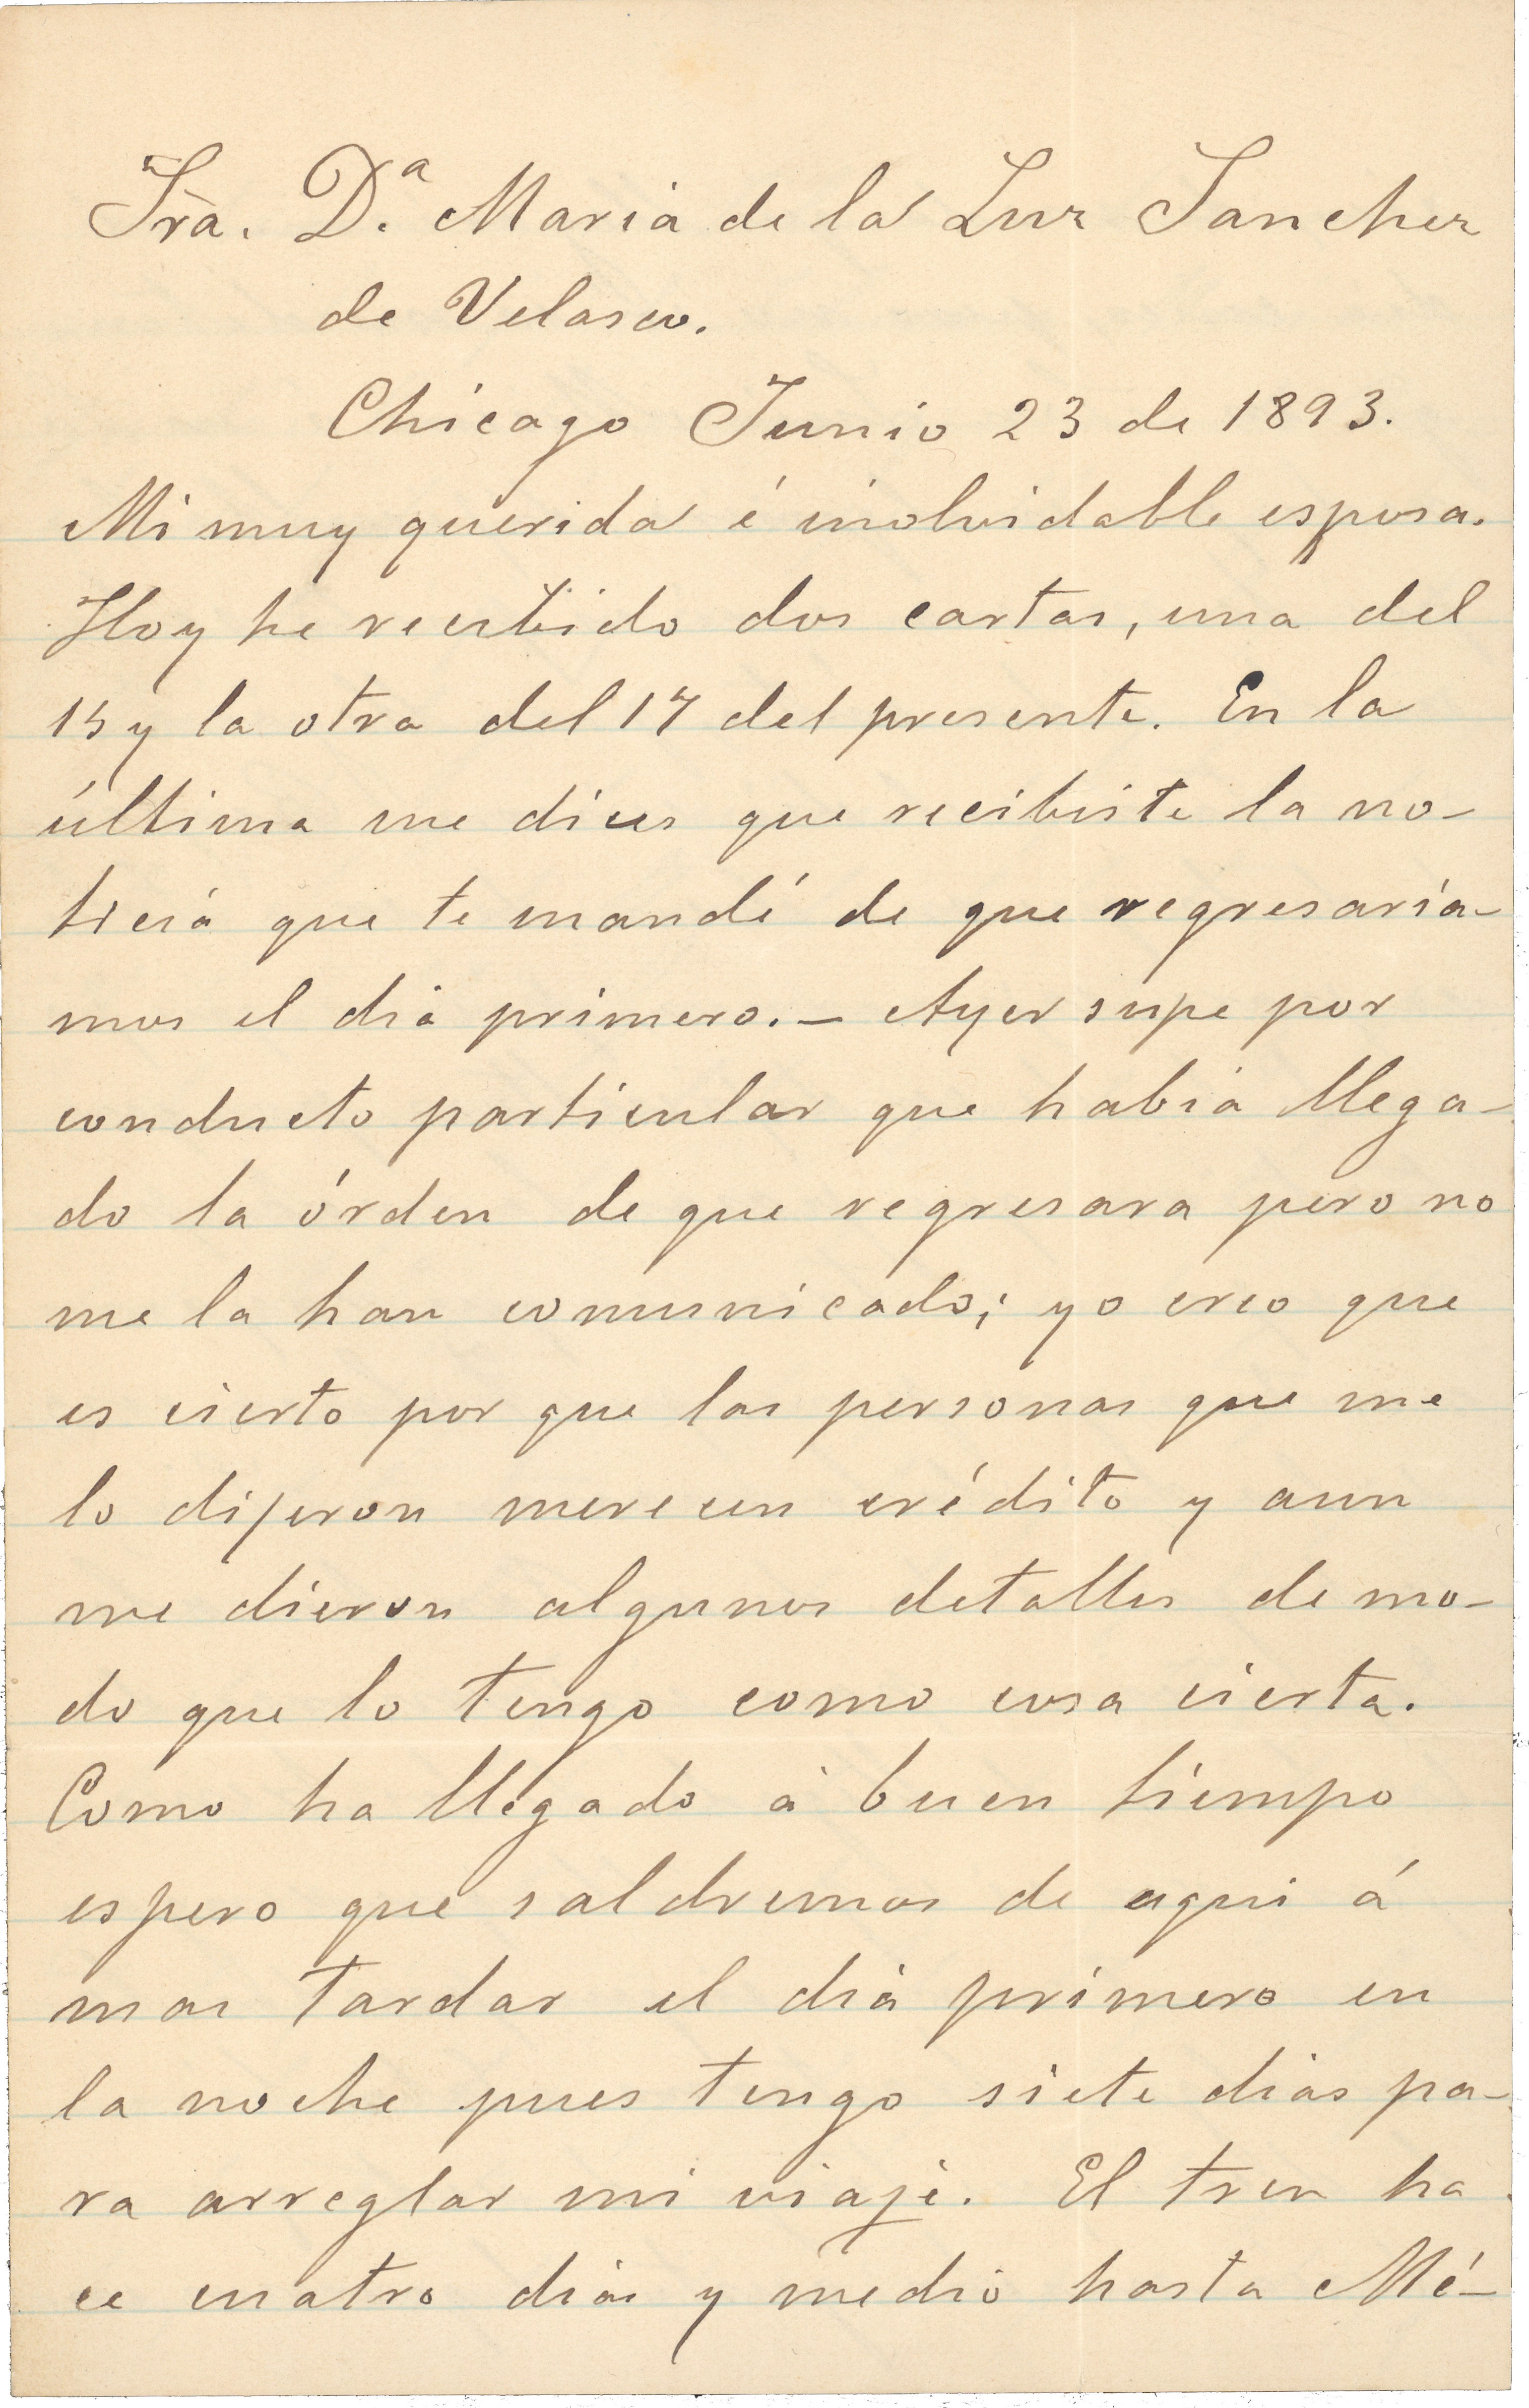 Sra. D.ª Maria de la Luz Sanchez
de Velasco.
Chicago Junio 23 de 1893.
Mi muy querida é inolvidable esposa.
Hoy he recibido dos cartas, una del
15 y la otra del 17 del presente. En la
última me dices que recibiste la no-
ticia que te mandé de que regresaria-
mos el dia primero.— Ayer supe por
conducto particular que habia llega-
do la órden de que regresara pero no
me la han comunicado; yo creo que
es cierto por que las personas que me
lo dijeron merecen crédito y aun
me dieron algunos detalles de mo-
do que lo tengo como cosa cierta.
Como ha llegado á buen tiempo
espero que saldremos de aqui á
mas tardar el dia primero en
la noche pues tengo siete dias pa-
ra arreglar mi viaje. El tren ha
ce cuatro dias y medio hasta Mé-